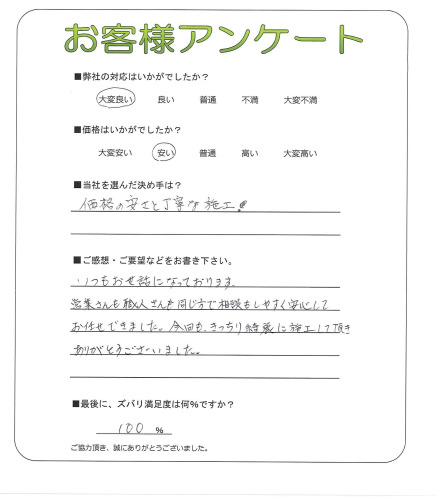 お客様アンケート
■弊社の対応はいかがでしたか？
大変良い 良い 普通 不満 大変不満
■価格はいかがでしたか？
大変安い 安い 普通 高い 大変高い
■当社を選んだ決め手は？
価格の安さと丁寧な施工！
■ご感想・ご要望などをお書き下さい。
いつもお世話になっております。
営業さんも職人さんも同じ方で相談もしやすく安心して
お任せできました。今回も、きっちり綺麗に施工して頂き
ありがとうございました。
■最後に、ズバリ満足度は何%ですか？
100 %
ご協力頂き、誠にありがとうございました。